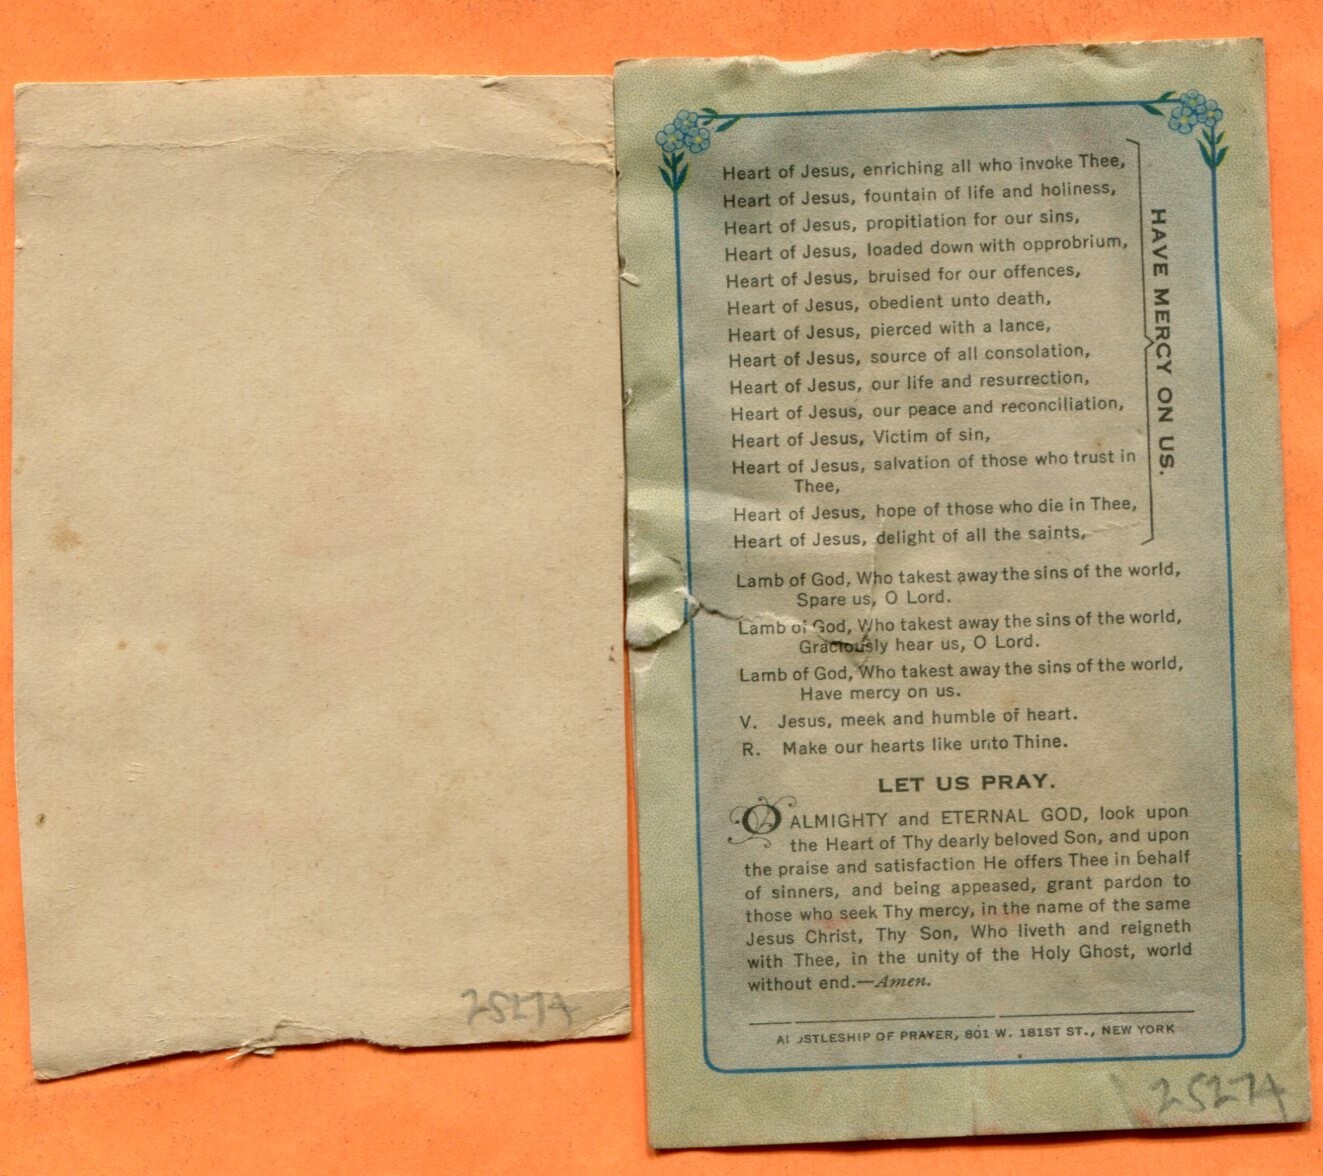 Heart of Jesus, enriching all who invoke Thee,
Heart of Jesus, fountain of life and holiness,
Heart of Jesus, propitiation for our sins,
Heart of Jesus, loaded down with opprobrium,
Heart of Jesus, bruised for our offences,
Heart of Jesus, obedient unto death,
Heart of Jesus, pierced with a lance,
Heart of Jesus, source of all consolation,
Heart of Jesus, our life and resurrection,
Heart of Jesus, our peace and reconciliation,
Heart of Jesus, Victim of sin,
Heart of Jesus, salvation of those who trust in
Thee,
Heart of Jesus, hope of those who die in Thee,
Heart of Jesus, delight of all the saints,
HAVE MERCY ON US.
Lamb of God, Who takest away the sins of the world,
Spare us, O Lord.
Lamb of God, Who takest away the sins of the world,
Graciously hear us, O Lord.
Lamb of God, Who takest away the sins of the world,
Have mercy on us.
V. Jesus, meek and humble of heart.
R. Make our hearts like unto Thine.
LET US PRAY.
O ALMIGHTY and ETERNAL GOD, look upon
the Heart of Thy dearly beloved Son, and upon
the praise and satisfaction He offers Thee in behalf
of sinners, and being appeased, grant pardon to
those who seek Thy mercy, in the name of the same
Jesus Christ, Thy Son, Who liveth and reigneth
with Thee, in the unity of the Holy Ghost, world
without end.—Amen.
APOSTLESHIP OF PRAYER, 801 W. 181ST ST., NEW YORK
25274
25274